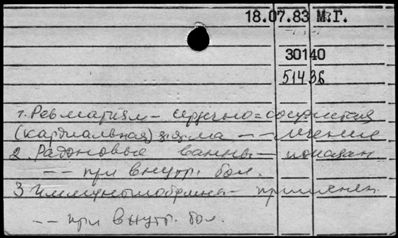 18.07.83 М.Г.
30140
51436
1. Ревматизм - сердечно=сосудистая
(кардиальная) астма -- лечение
2. Радоновые ванны - показан
-- при внутр. бол.
3 Иммуноглобулины - применен.
-- при внутр. бол.